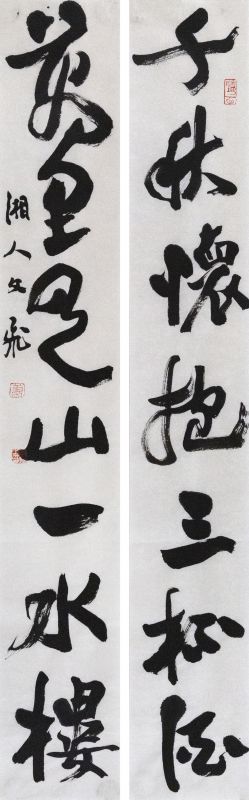 千秋懷抱三杯酒
萬里雲山一水樓
湘人文飛